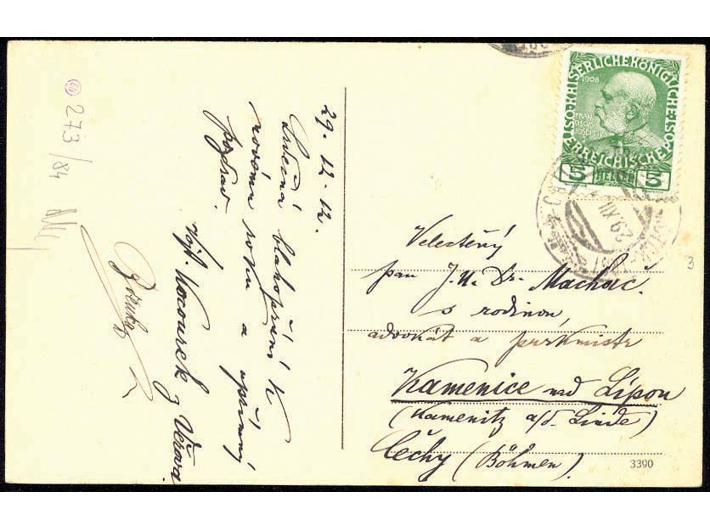 29. 12. 12.
Srdečná blahopřání k
novému roku a upřímný
pozdrav.
Vojt. Kovourek z
273/84
KAISERLICHE KÖNIGLICHE
1908
ÖSTERREICHISCHE POST
5 HELLER 5
29. XII
Velectěný
pan J. U. Dr. Machač.
s rodinou,
advokát a purkmistr
Kamenice nad Lipou
(Kamenitz a/d. Linde)
Čechy (Böhmen)
3390
3